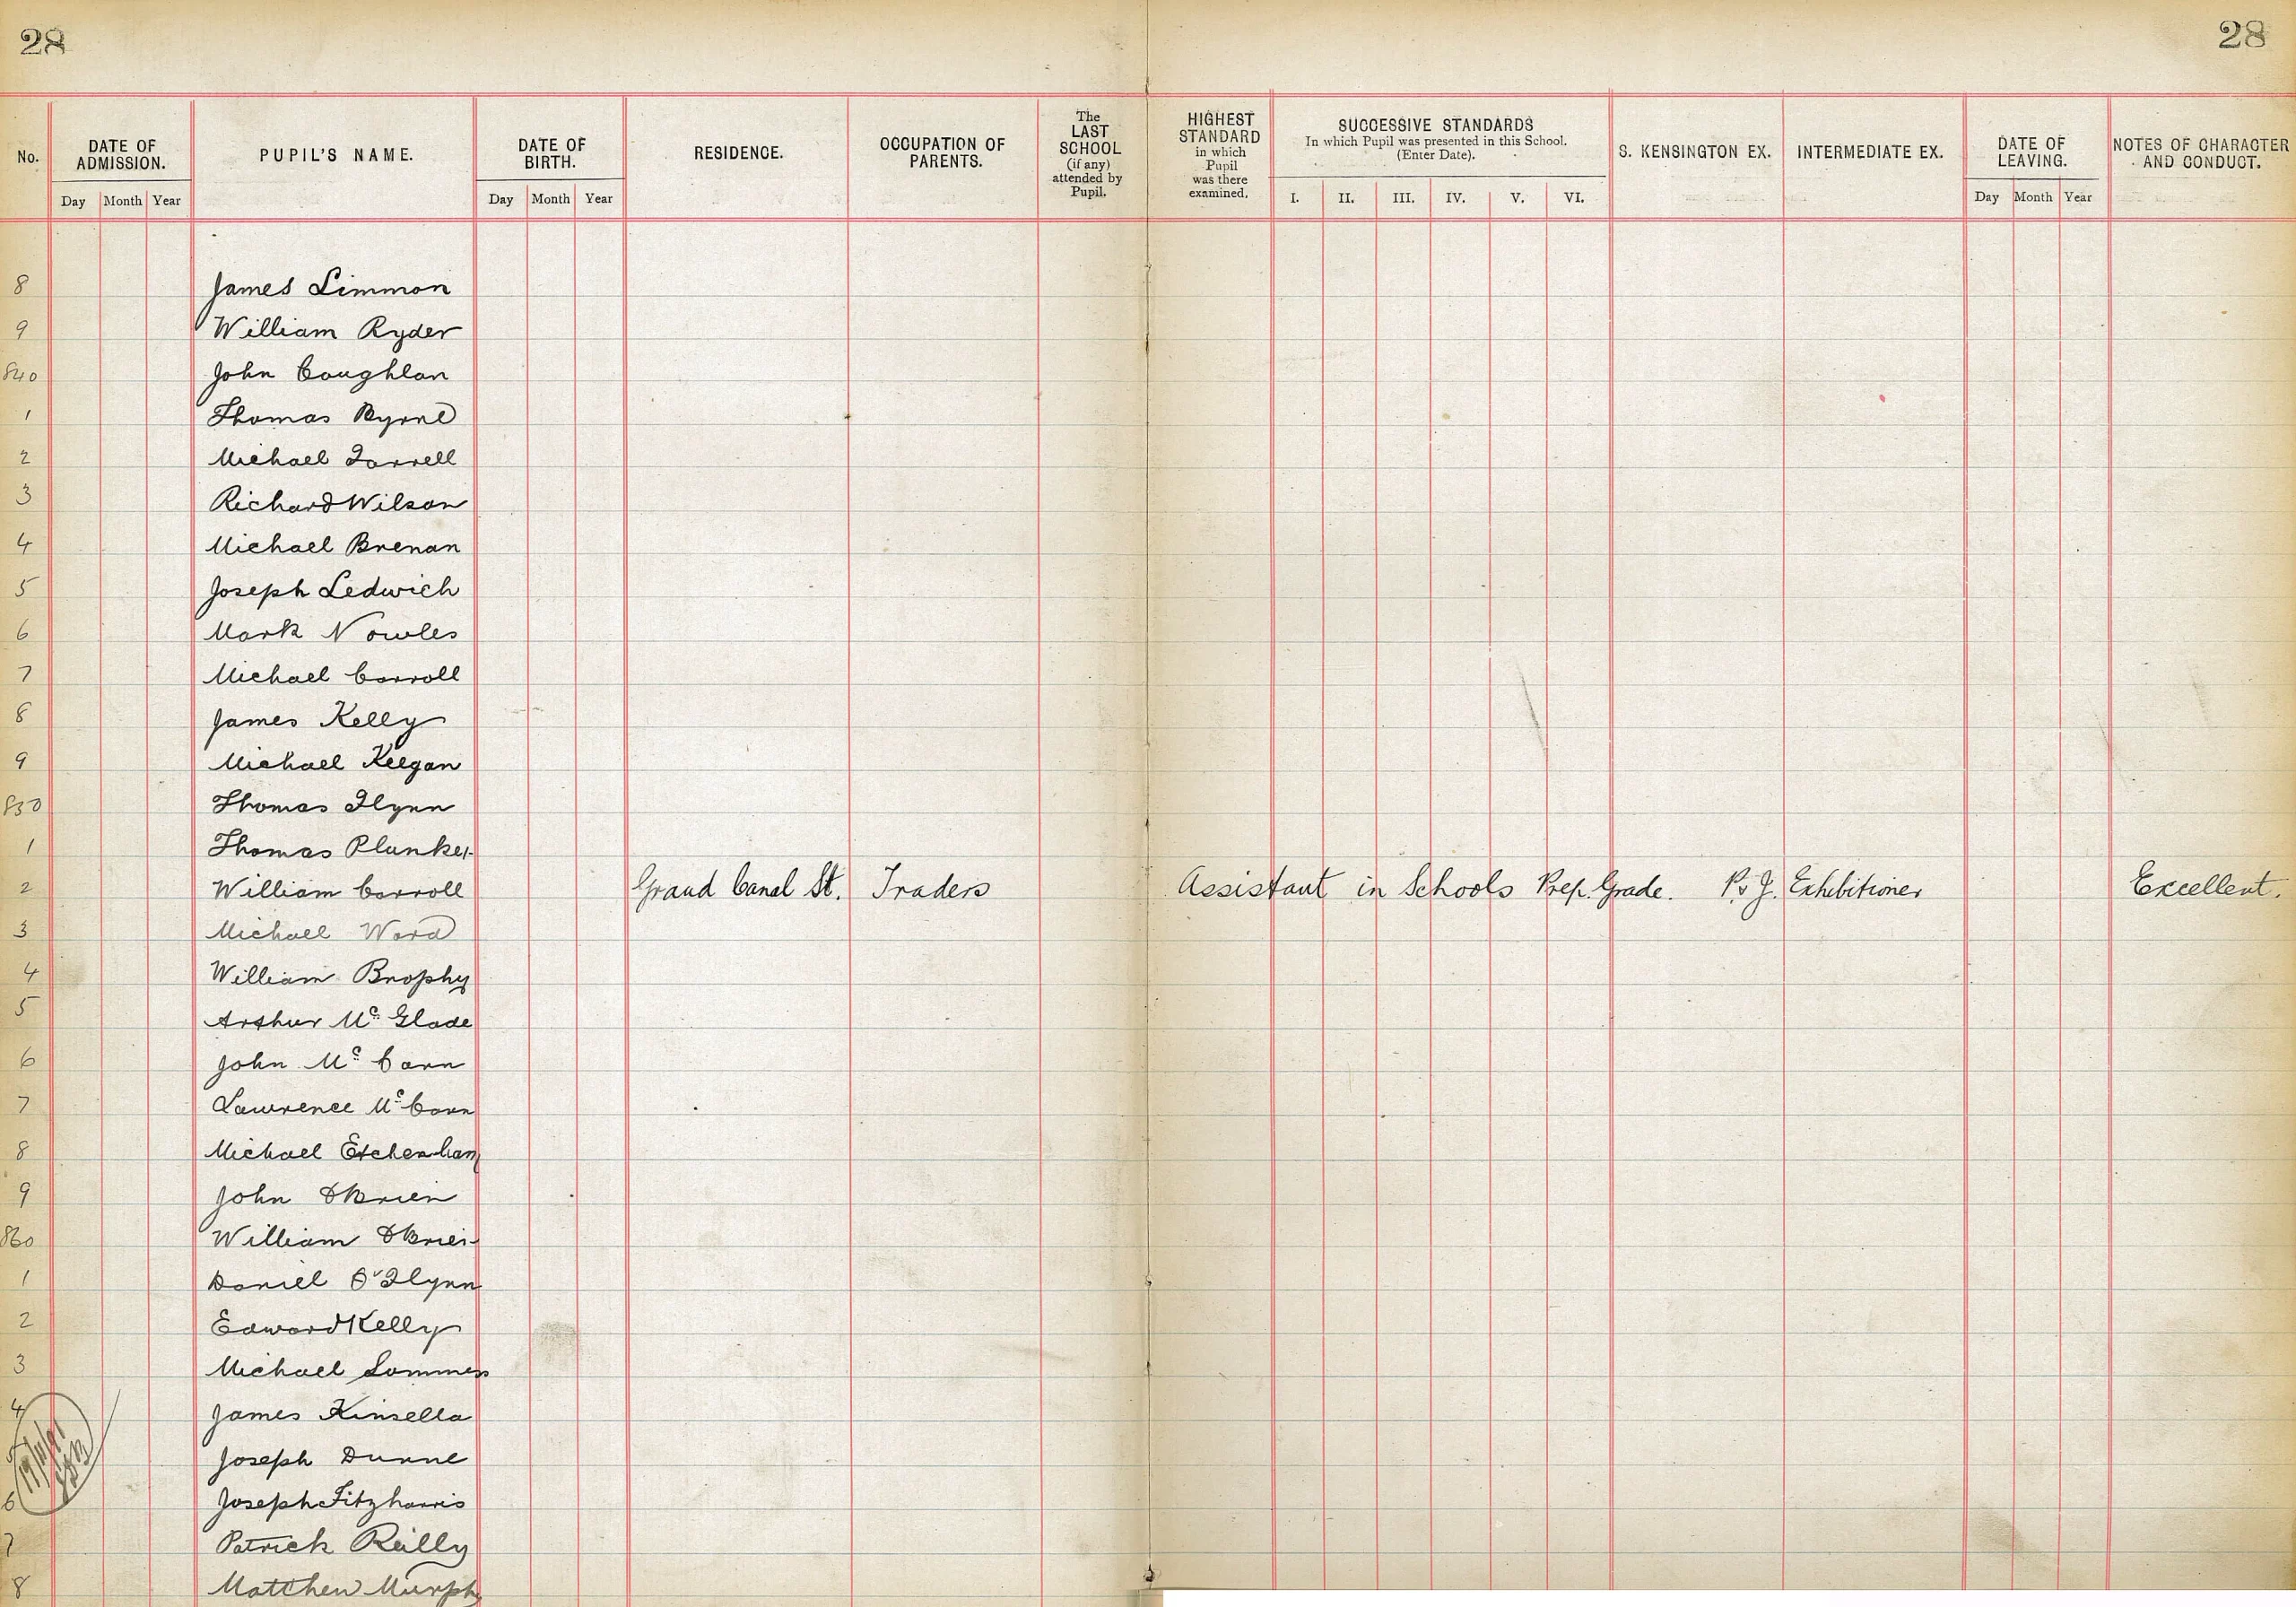 28
28
No.
DATE OF ADMISSION.
PUPIL'S NAME.
DATE OF BIRTH.
RESIDENCE.
OCCUPATION OF PARENTS.
The LAST SCHOOL (if any) attended by Pupil.
HIGHEST STANDARD in which Pupil was there examined.
SUCCESSIVE STANDARDS
In which Pupil was presented in this School.
(Enter Date).
S. KENSINGTON EX.
INTERMEDIATE EX.
DATE OF LEAVING.
NOTES OF CHARACTER AND CONDUCT.
Day Month Year
Day Month Year
I. II. III. IV. V. VI.
Day Month Year
8 James Simmon
9 William Ryder
840 John Coughlan
1 Thomas Byrne
2 Michael Farrell
3 Richard Wilson
4 Michael Brenan
5 Joseph Ledwich
6 Mark Nowles
7 Michael Carroll
8 James Kelly
9 Michael Keegan
850 Thomas Flynn
1 Thomas Plunket
2 William Carroll Grand Canal St. Traders Assistant in Schools Prep. Grade. P. & J. Exhibitioner Excellent.
3 Michael Ward
4 William Brophy
5 Arthur Mc Glade
6 John Mc Cann
7 Lawrence Mc Cann
8 Michael Etchenham
9 John O'Brien
860 William O'Brien
1 Daniel O'Flynn
2 Edward Kelly
3 Michael Sommers
4 James Kinsella
Joseph Dunne
6 Joseph Fitzharris
7 Patrick Reilly
8 Matthew Murphy